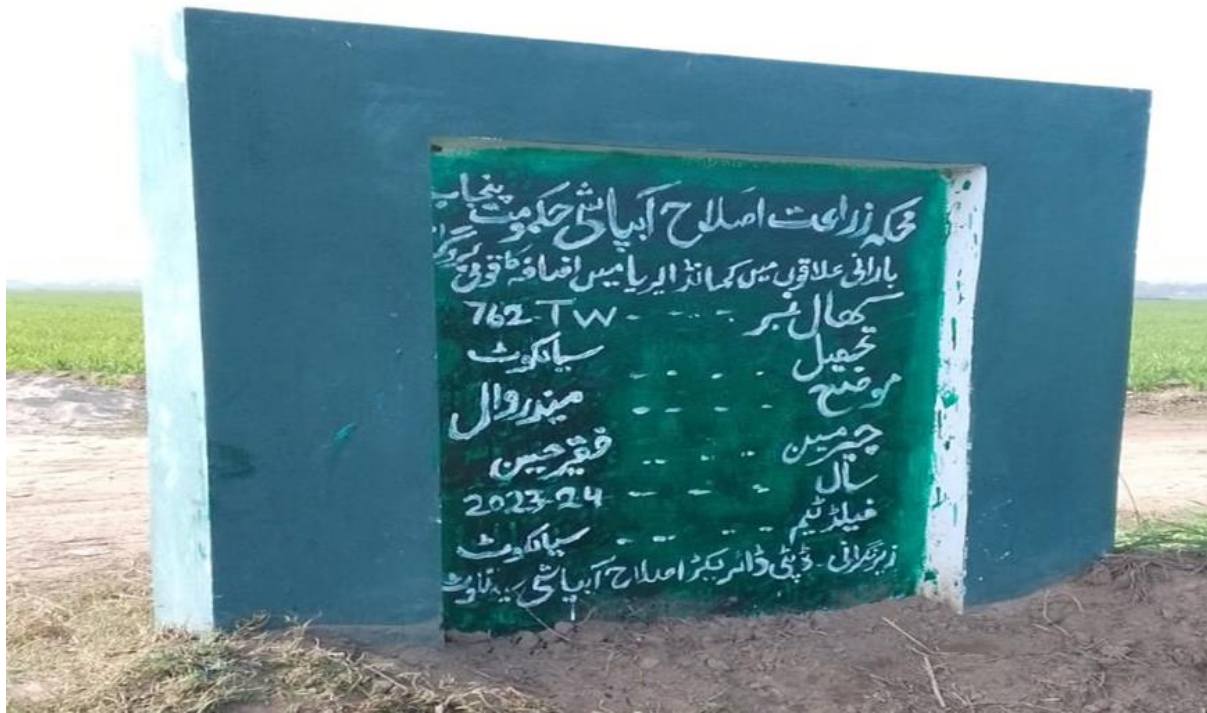 محکمہ زراعت اصلاح آبپاشی حکومت پنجاب
بارانی علاقوں میں کمانڈ ایریا میں اضافہ قومی پروگرام
کھال نمبر ---- 762-TW
تحصیل ---- سیالکوٹ
موضع ---- میندروال
چیرمین ---- فقیر حسین
سال ---- 2023-24
فیلڈ ٹیم ---- سیالکوٹ
زیر نگرانی - ڈپٹی ڈائریکٹر اصلاح آبپاشی سیالکوٹ